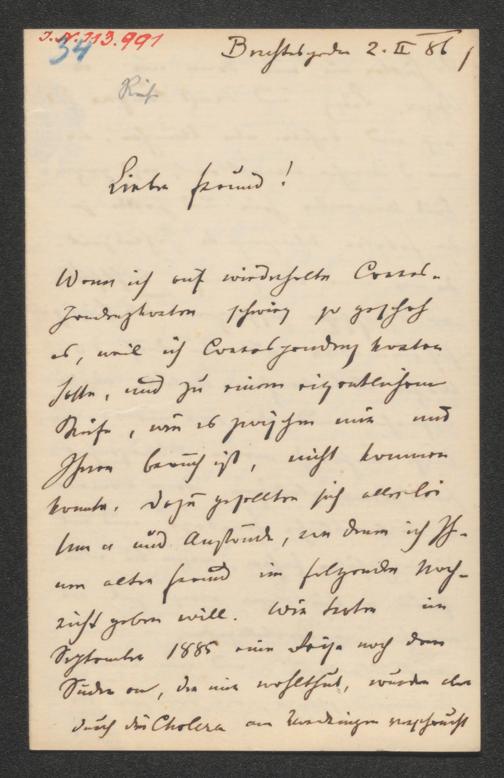 I.N. 113.991
34
Berchtesgaden 2. II 86
Lieber Freund!
Wenn ich auf wiederholte Corres-
pondenzkarten schwieg so geschah
es, weil ich Correspondenz karten
hasse, und zu einem eigentlichen
Briefe, wie es zwischen mir und
Ihnen Brauch ist, nicht kommen
konnte. Dazu gesellten sich allerlei
und Anstände, von denen ich Ih-
nen alter Freund im folgenden Nach-
richt geben will. Wir traten im
September 1885 eine Reise nach dem
Süden an, die mir wohlthat, wurden aber
durch die Cholera am verscheucht